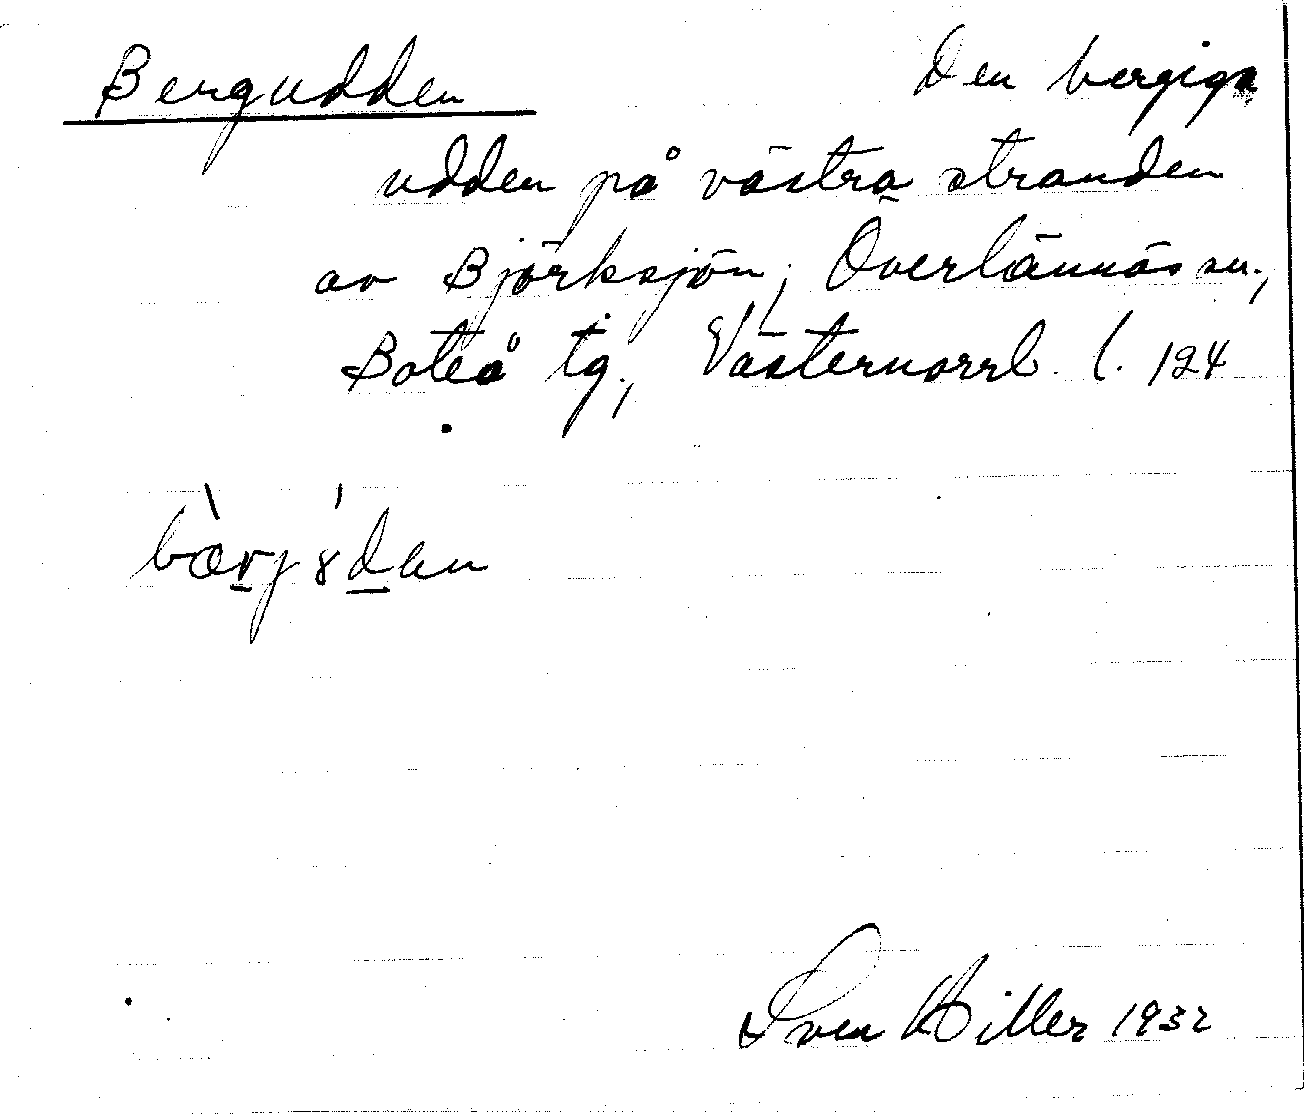 Bergudden Den bergiga
udden på västra stranden
av Björksjön, Överlännäs sn.,
Boteå tg., Västernorrl. l. 124
bærj8dan
Sven Hiller 1932